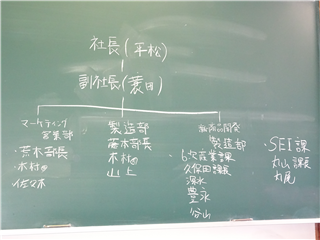 社長(平松)
副社長(蓑田)
マーケティング
営業部
・荒木部長
・木村
・佐々木
製造部
藤本部長
木村
山上
の開発
製造部
6次産業課
久保田課長
深水
豊永
・SEI課
丸山課長
丸尾